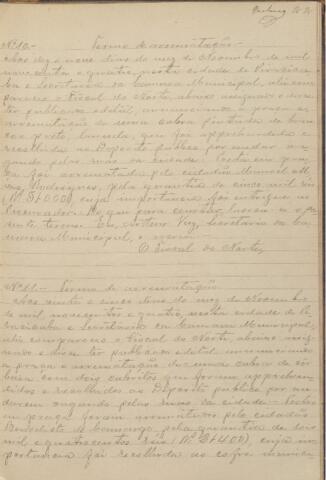 Nº 10.- Termo de arrematação.-
Aos dez e nove dias do mez de Novembro de mil
nove centos e quatro, nesta cidade de Piracica-
ba e Secretaria da Camara Municipal, ahi com-
pareceu o Fiscal do Norte, abaixo assignado e
ter publicado edital, annunciando a praça e ar-
rematação de uma cabra pintada de bran-
co e preto, que foi apprehendida e
recolhida ao Deposito publico por andar va-
gando pelas ruas da cidade. Posta em pra-
ça foi arrematada pelo cidadão Manoel
Rodrigues, pela quantia de cinco mil réis
(Rs 5$000), cuja importancia foi entregue ao
Procurador. Do que para constar lavrou-se o pre-
sente termo. Eu, Secretario da Ca-
mara Municipal, o escrevi.
O Fiscal do Norte,
Nº 11.- Termo de arrematação
Aos vinte e cinco dias do mez de Novembro
de mil, novecentos e quatro, nesta cidade de Pi-
racicaba e Secretaria da Camara Municipal,
ahi compareceu o Fiscal do Norte, abaixo assig-
nado e disse ter publicado edital annunciando
a praça e arrematação de uma cabra
com dois cabritos que foram apprehen-
didos e recolhidos ao Deposito publico por an-
darem vagando pelas ruas da cidade. Postos
em praça foram arrematados pelo cidadão
Benedicto de Camargo pela quantia de dois
mil e quatrocentos réis (Rs 2$400), cuja im-
portancia foi recolhida ao cofre munici-